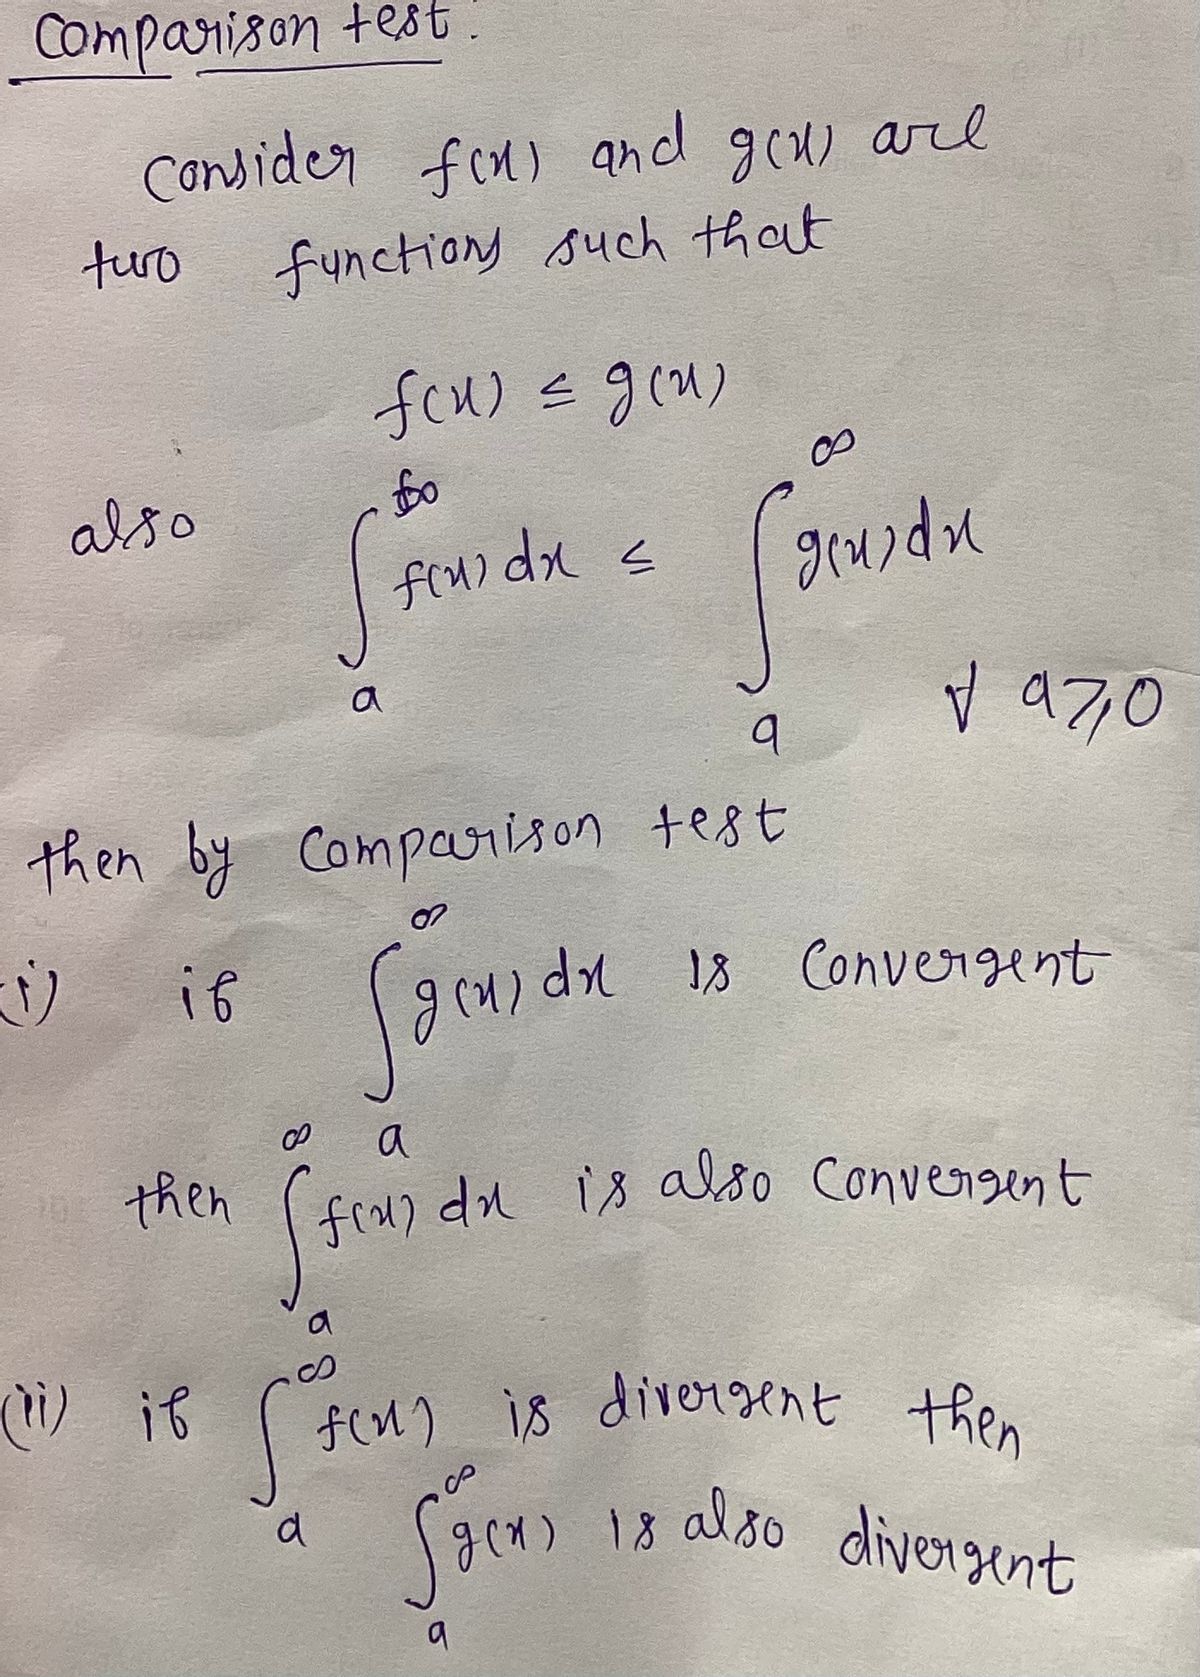 Comparison test.
Consider f(x) and g(x) are
two functions such that
f(x) ≤ g(x)
also ∫_a^∞ f(x) dx ≤ ∫_a^∞ g(x) dx
∀ a ≥ 0
then by Comparison test
(i) if ∫_a^∞ g(x) dx is Convergent
then ∫_a^∞ f(x) dx is also Convergent
(ii) if ∫_a^∞ f(x) is divergent then
∫_a^∞ g(x) is also divergent